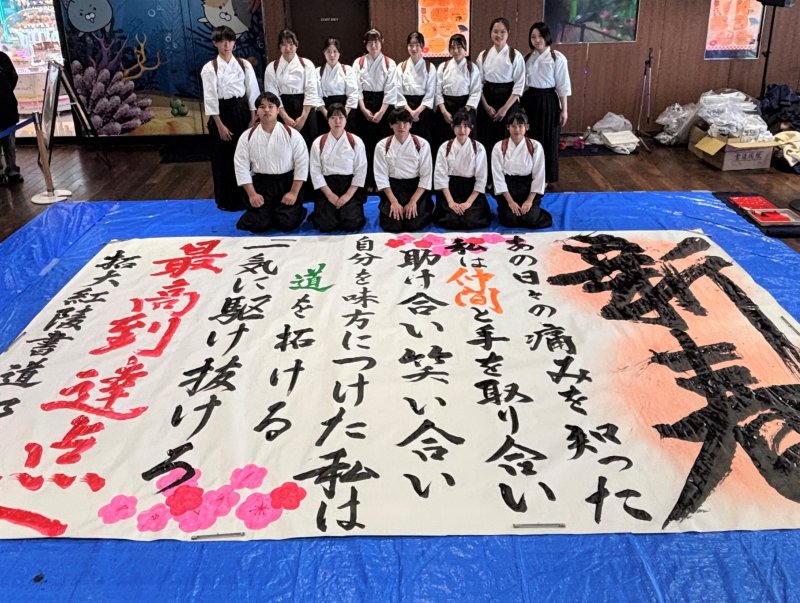 新春
あの日々の痛みを知った
私は仲間と手を取り合い
助け合い笑い合い
自分を味方につけた私は
道を拓ける
一気に駆け抜けろ
最高到達点へ
拓大紅陵書道部
STAFF ONLY